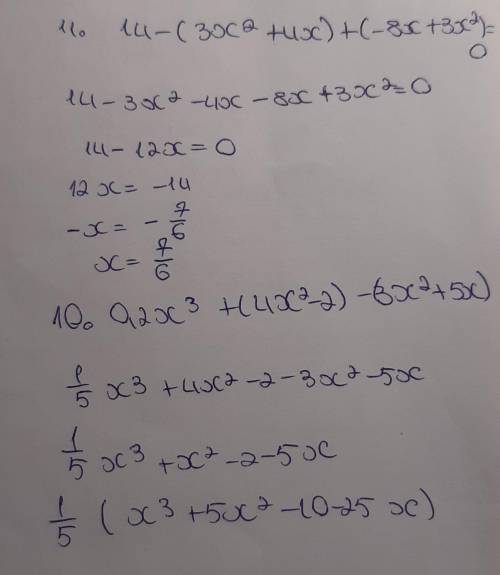 11. 14-(3x²+4x)+(-8x+3x²)=
0
14-3x²-4x-8x+3x²=0
14-12x=0
12x=-14
-x=-7/6
x=7/6
10. 0,2x³+(4x²-2)-(3x²+5x)
1/5 x³+4x²-2-3x²-5x
1/5 x³+x²-2-5x
1/5 (x³+5x²-10-25x)